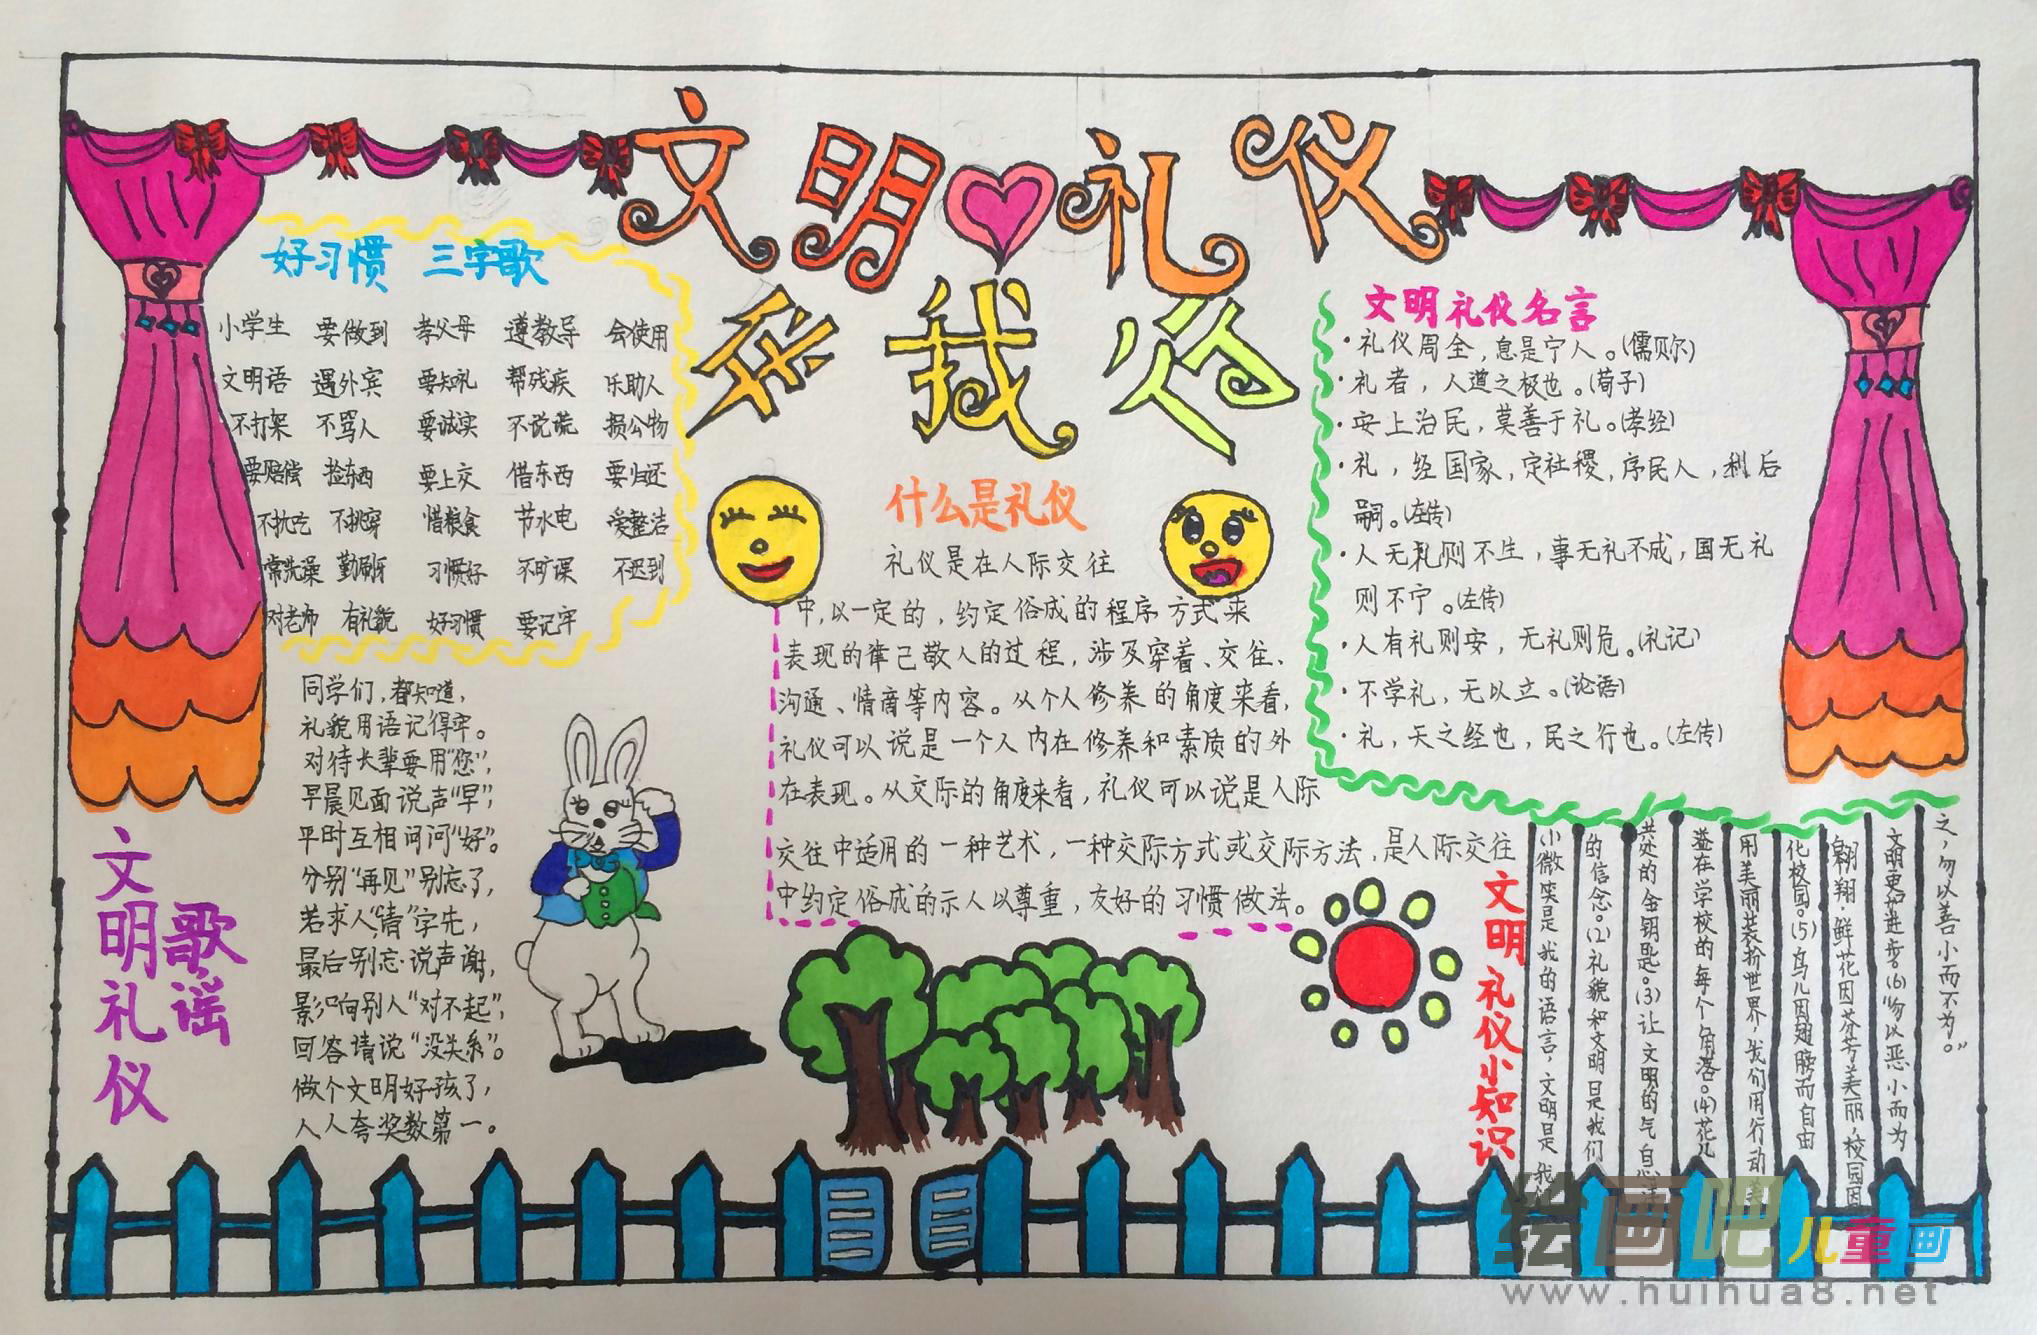 文明礼仪
伴我行
好习惯 三字歌
小学生 要做到 孝父母 遵教导 会使用
文明语 遇外宾 要知礼 帮残疾 乐助人
不打架 不骂人 要诚实 不说谎 损公物
要赔偿 捡东西 要上交 借东西 要归还
不挑吃 不挑穿 惜粮食 节水电 爱整洁
常洗澡 勤刷牙 习惯好 不旷课 不迟到
对老师 有礼貌 好习惯 要记牢
文明礼仪
歌谣
同学们，都知道，
礼貌用语记得牢。
对待长辈要用“您”，
早晨见面说声“早”，
平时互相问问“好”。
分别“再见”别忘了，
若求人“请”字先，
最后别忘说声谢，
影响别人“对不起”，
回答请说“没关系”。
做个文明好孩了，
人人夸奖数第一。
什么是礼仪
礼仪是在人际交往
中，以一定的，约定俗成的程序方式来
表现的律己敬人的过程，涉及穿着、交往、
沟通、情商等内容。从个人修养的角度来看，
礼仪可以说是一个人内在修养和素质的外
在表现。从交际的角度来看，礼仪可以说是人际
交往中适用的一种艺术，一种交际方式或交际方法，是人际交往
中约定俗成的示人以尊重，友好的习惯做法。
文明礼仪名言
·礼仪周全，息是宁人。(儒贝尔)
·礼者，人道之极也。(荀子)
·安上治民，莫善于礼。(孝经)
·礼，经国家，定社稷，序民人，利后
嗣。(左传)
·人无礼则不生，事无礼不成，国无礼
则不宁。(左传)
·人有礼则安，无礼则危。(礼记)
·不学礼，无以立。(论语)
·礼，天之经也，民之行也。(左传)
文明礼仪小知识
(1)微笑是我的语言，文明是我
的信念。(2)礼貌和文明是我们
共处的金钥匙。(3)让文明的气息
溢在学校的每个角落。(4)花儿
用美丽装扮世界，我们用行动美
化校园。(5)鸟儿因翅膀而自由
翱翔，鲜花因芬芳美丽，校园因
文明更加进步。(6)“勿以恶小而为
之，勿以善小而不为。”
绘画吧儿童画
www.huihua8.net